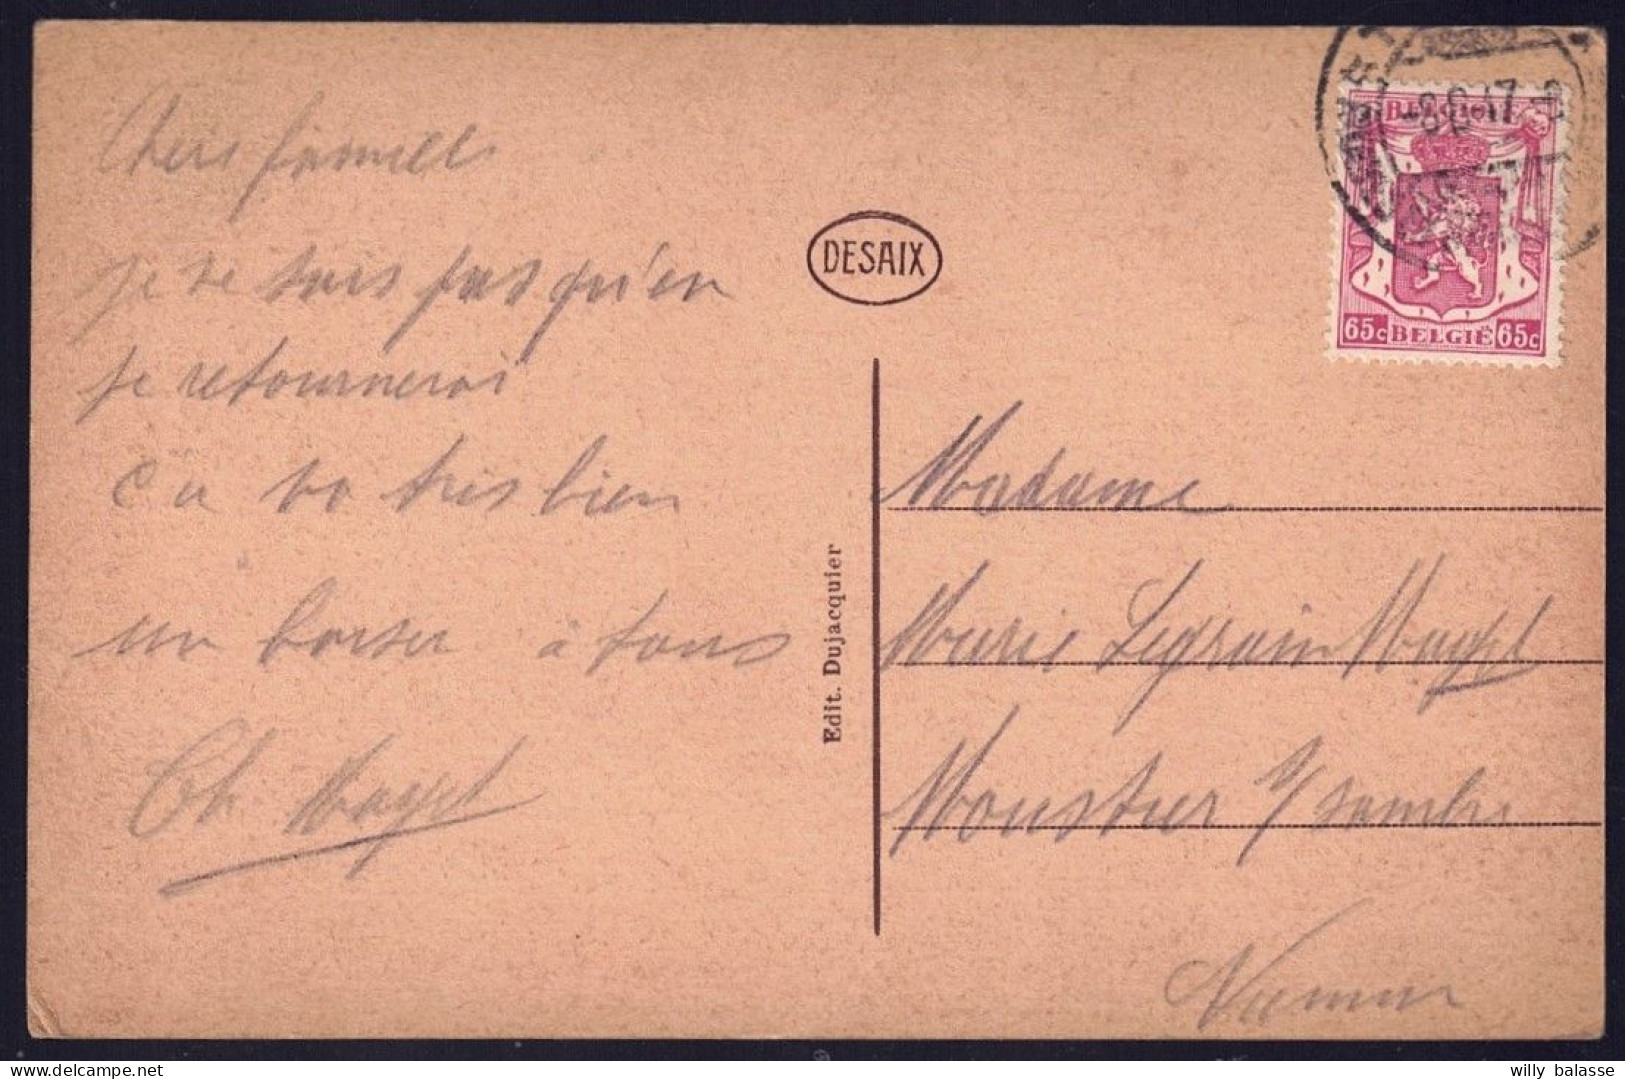 Chere famille
je ne sais pas qu'en
je retournerai
ca va très bien
un baiser à tous
Ch Mayel
DESAIX
Edit. Dujacquier
BELGIQUE
65c BELGIË 65c
Madame
Marie Legrain Mayel
Moustier s/ sambre
Namur
willy balasse